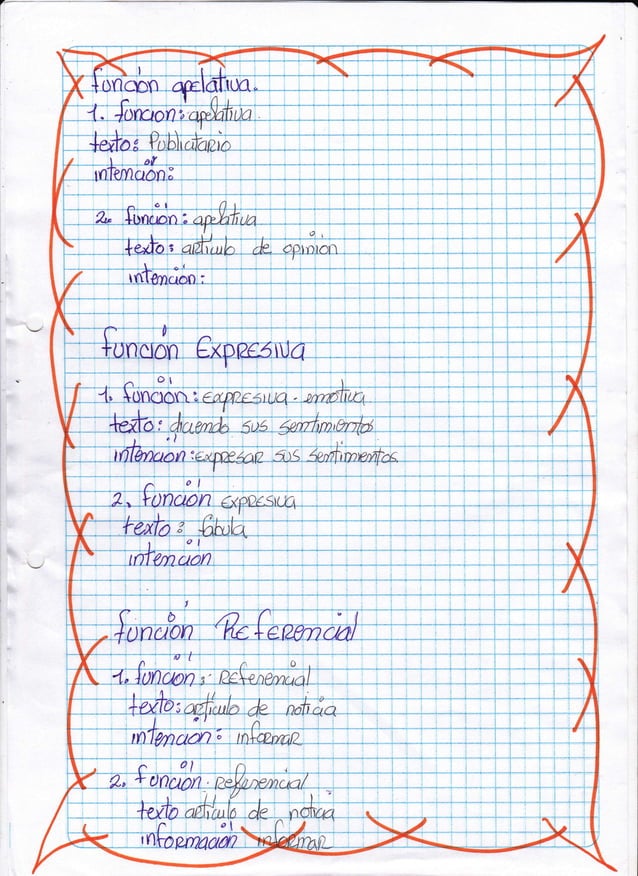 función apelativa.
1. funcion: apelativa.
texto: Publicitario
intención:
2. función: apelativa
texto: artículo de opinión
intención:
función Expresiva
1. función: expresiva - emotiva
texto: diciendo sus sentimientos
intención: expresar sus sentimientos.
2. función expresiva
texto: fabula
intención
función Referencial
1. función: Referencial
texto: artículo de noticia
intención: informar
2. función: Referencial
texto artículo de noticia
información informar